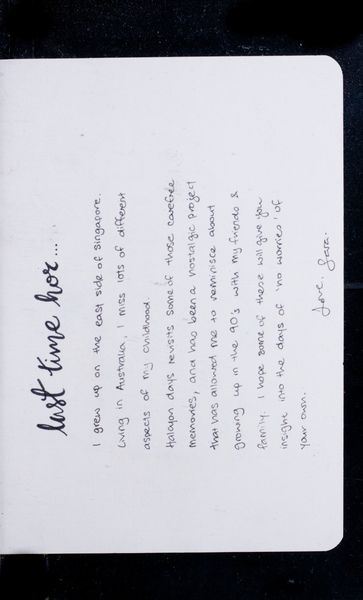 last time hor...
I grew up on the east side of Singapore.
Living in Australia I miss lots of different
aspects of my childhood.
Halcyon days revisits some of those carefree
memories, and has been a nostalgic project
that has allowed me to reminisce about
growing up in the 90's with my friends &
family. I hope some of these will give you
insight into the days of 'no worries' of
your own.
Love, Sara.